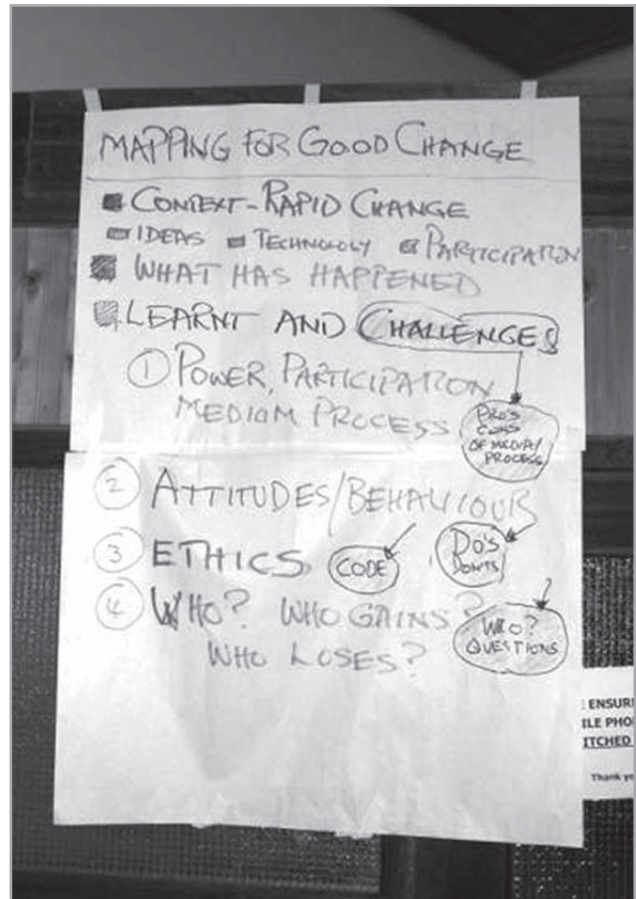 MAPPING FOR GOOD CHANGE
CONTEXT - RAPID CHANGE
IDEAS TECHNOLOGY PARTICIPATION
WHAT HAS HAPPENED
LEARNT AND CHALLENGES
1 POWER, PARTICIPATION
MEDIUM PROCESS
PRO'S
CONS
OF MEDIA/
PROCESS
2 ATTITUDES/BEHAVIOUR
3 ETHICS
CODE
DO'S
DONTS
4 WHO? WHO GAINS?
WHO LOSES?
WHO?
QUESTIONS
ENSUR
ILE PHO
ITCHED
Thank yo